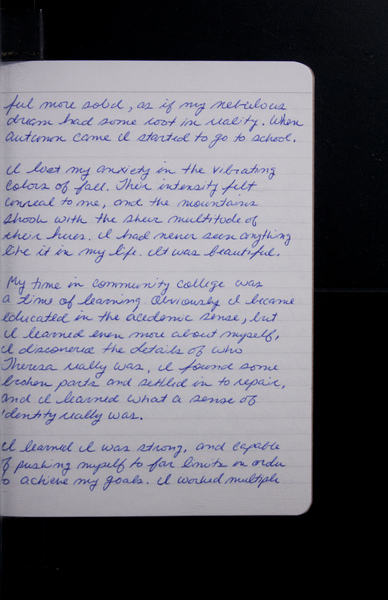 ful more solid, as if my nebulous
dream had some root in reality. When
autumn came I started to go to school.
I lost my anxiety in the vibrating
colors of fall. Their intensity felt
unreal to me, and the mountains
shook with the sheer multitude of
their hues. I had never seen anything
like it in my life. It was beautiful.
My time in community college was
a time of learning. Obviously I became
educated in the academic sense, but
I learned even more about myself,
I discovered the details of who
Theresa really was, I found some
broken parts and settled in to repair,
and I learned what a sense of
identity really was.
I learned I was strong, and capable
of pushing myself to far limits in order
to achieve my goals. I worked multiple